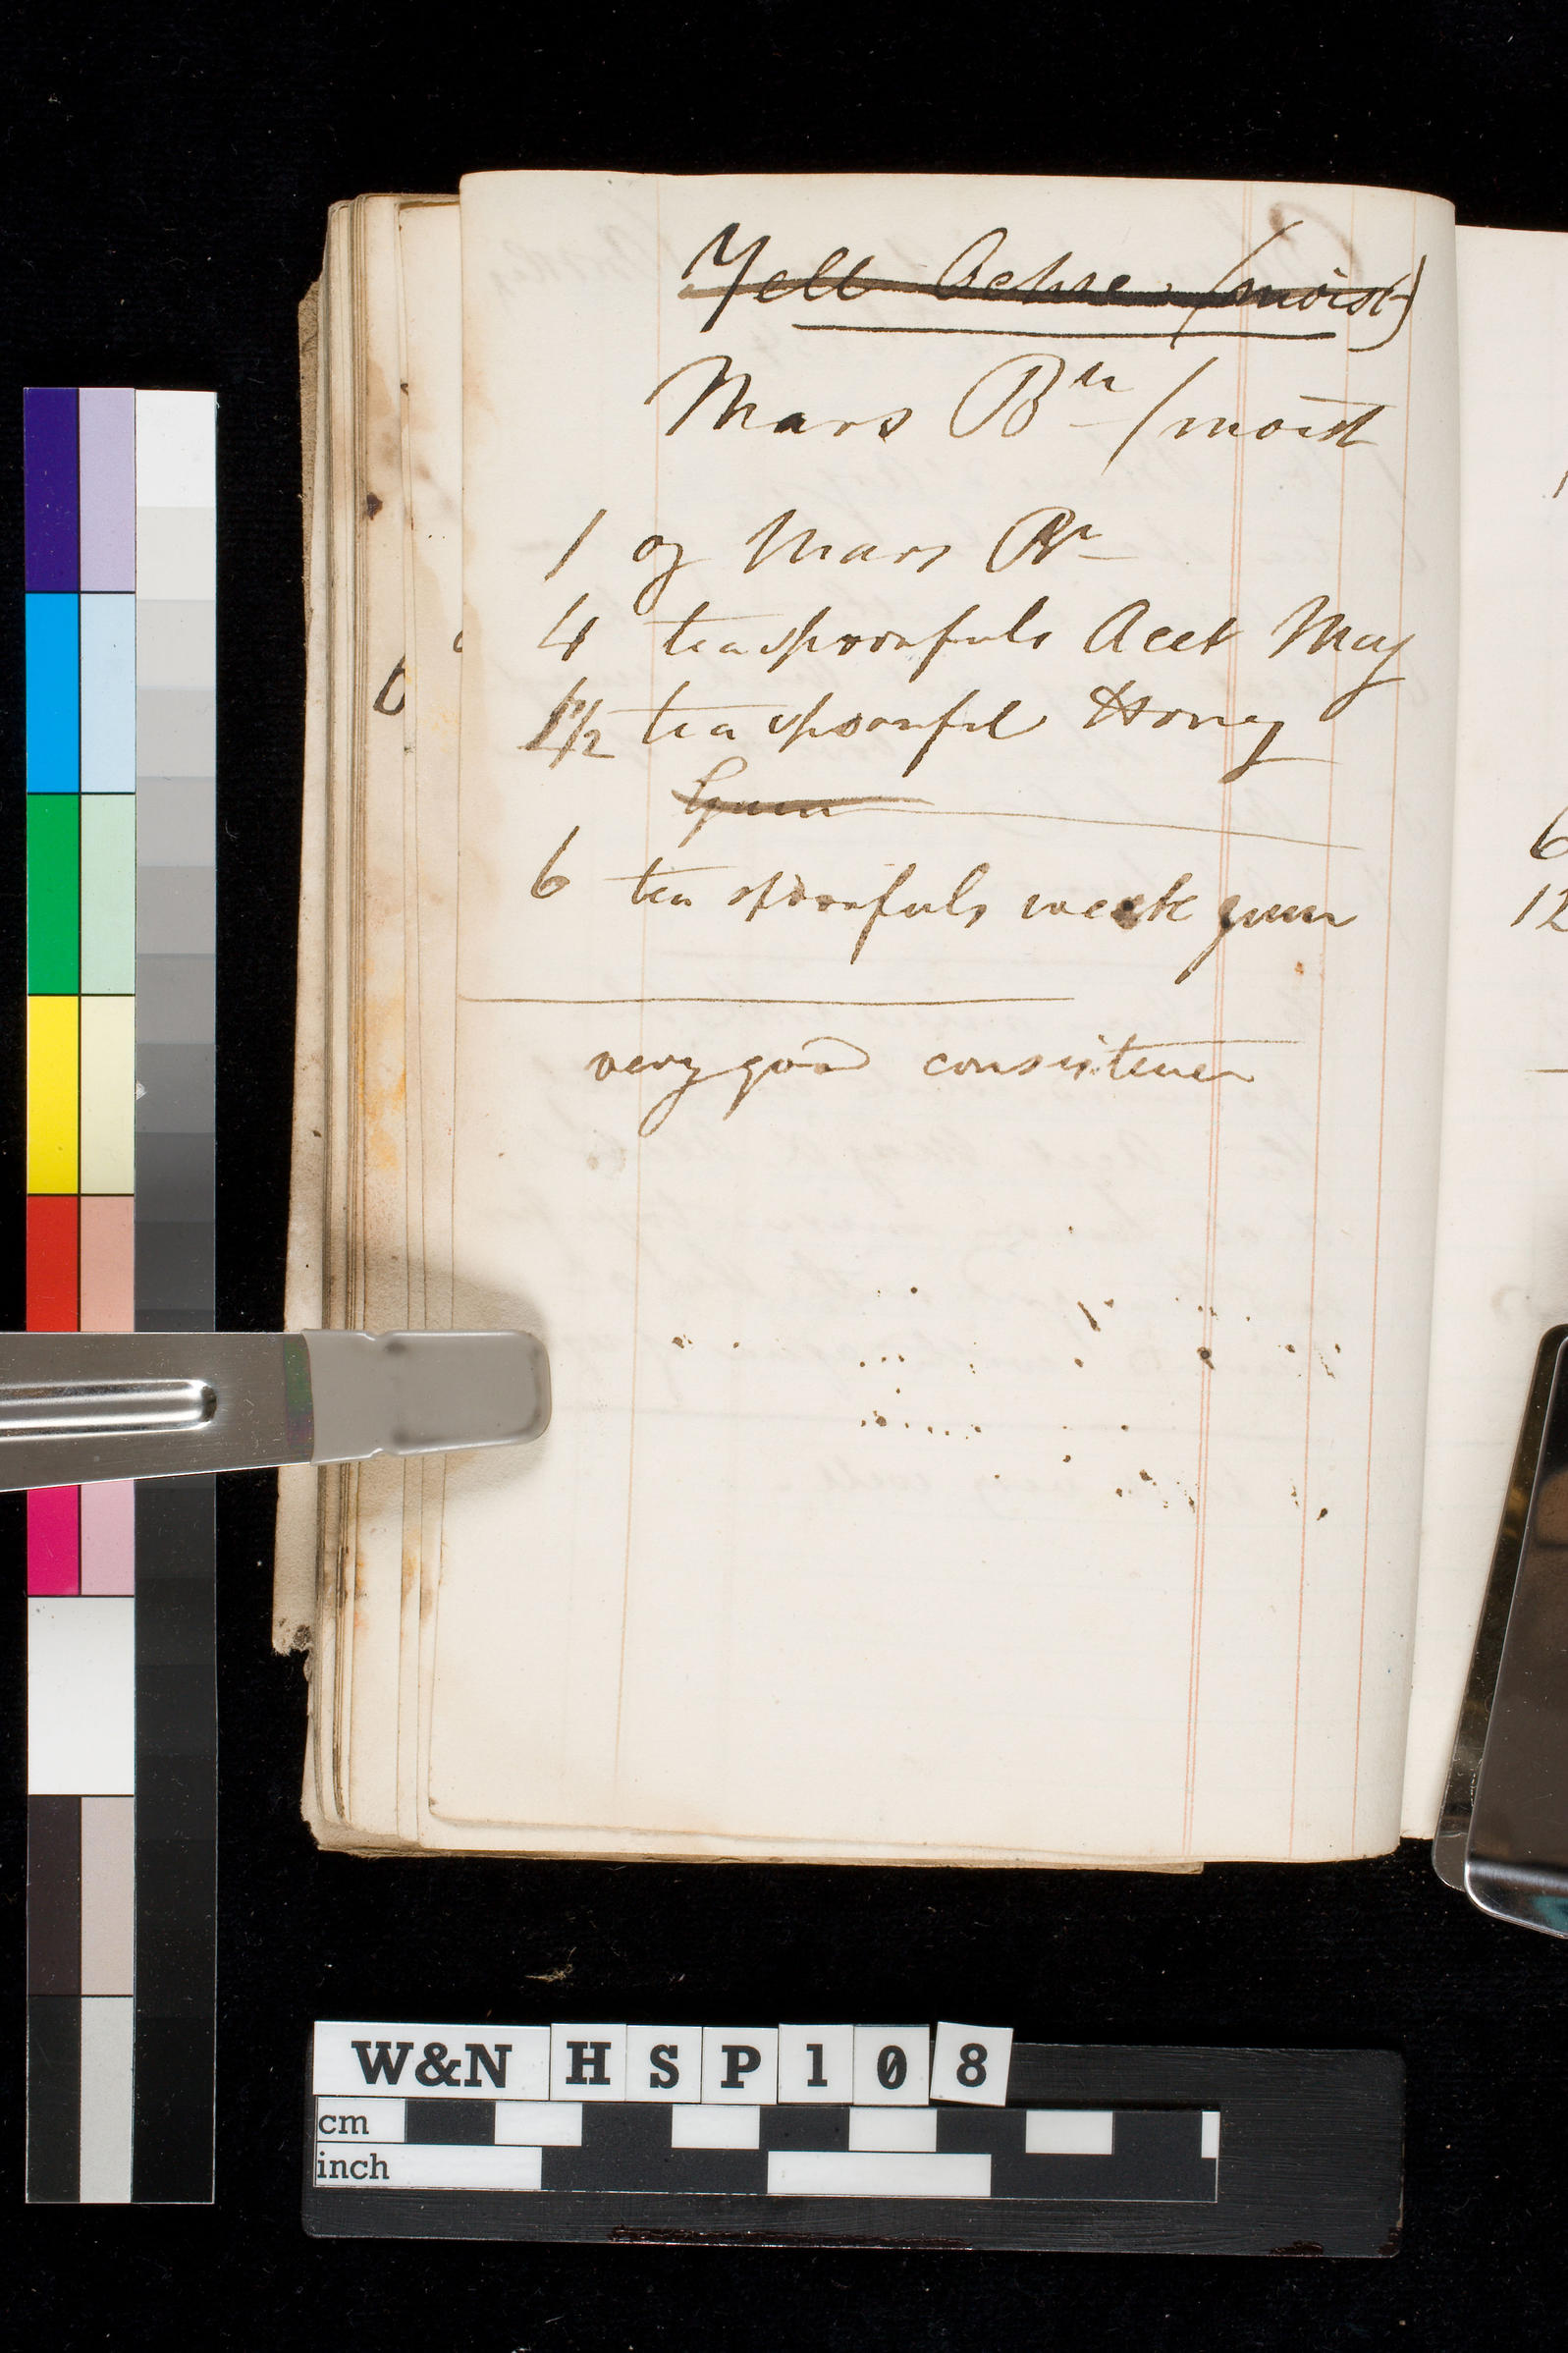 Yell Ochre (moist)
Mars Bn (moist
1 oz Mars Br
4 teaspoonfuls Acet Mag
1 1/2 teaspoonful Honey
Gum
6 tea spoonfuls weak gum
very good consistency
6
12
W&N HSP108
cm
inch